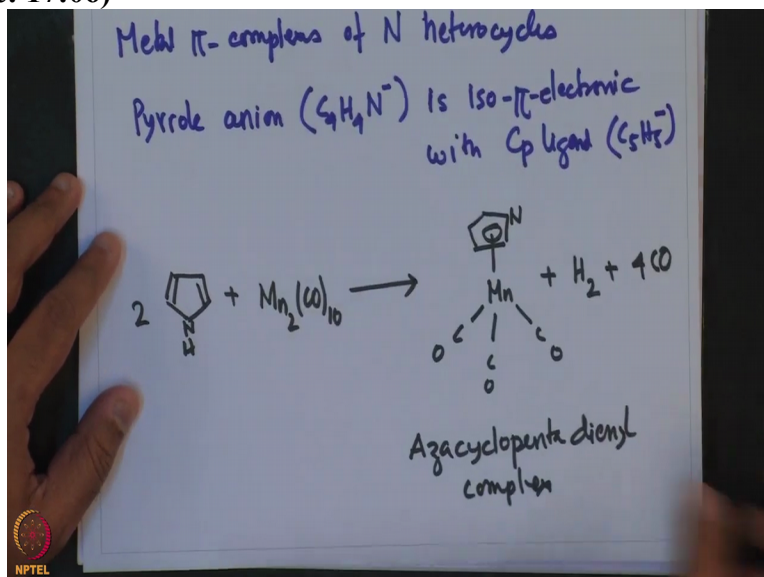 Metal π-complexes of N heterocycles
Pyrrole anion (C₄H₄N⁻) is iso-π-electronic
with Cp ligand (C₅H₅⁻)
2 N H + Mn₂(CO)₁₀ ⟶ N Mn C O C O C O + H₂ + 4CO
Azacyclopentadienyl
complex
NPTEL